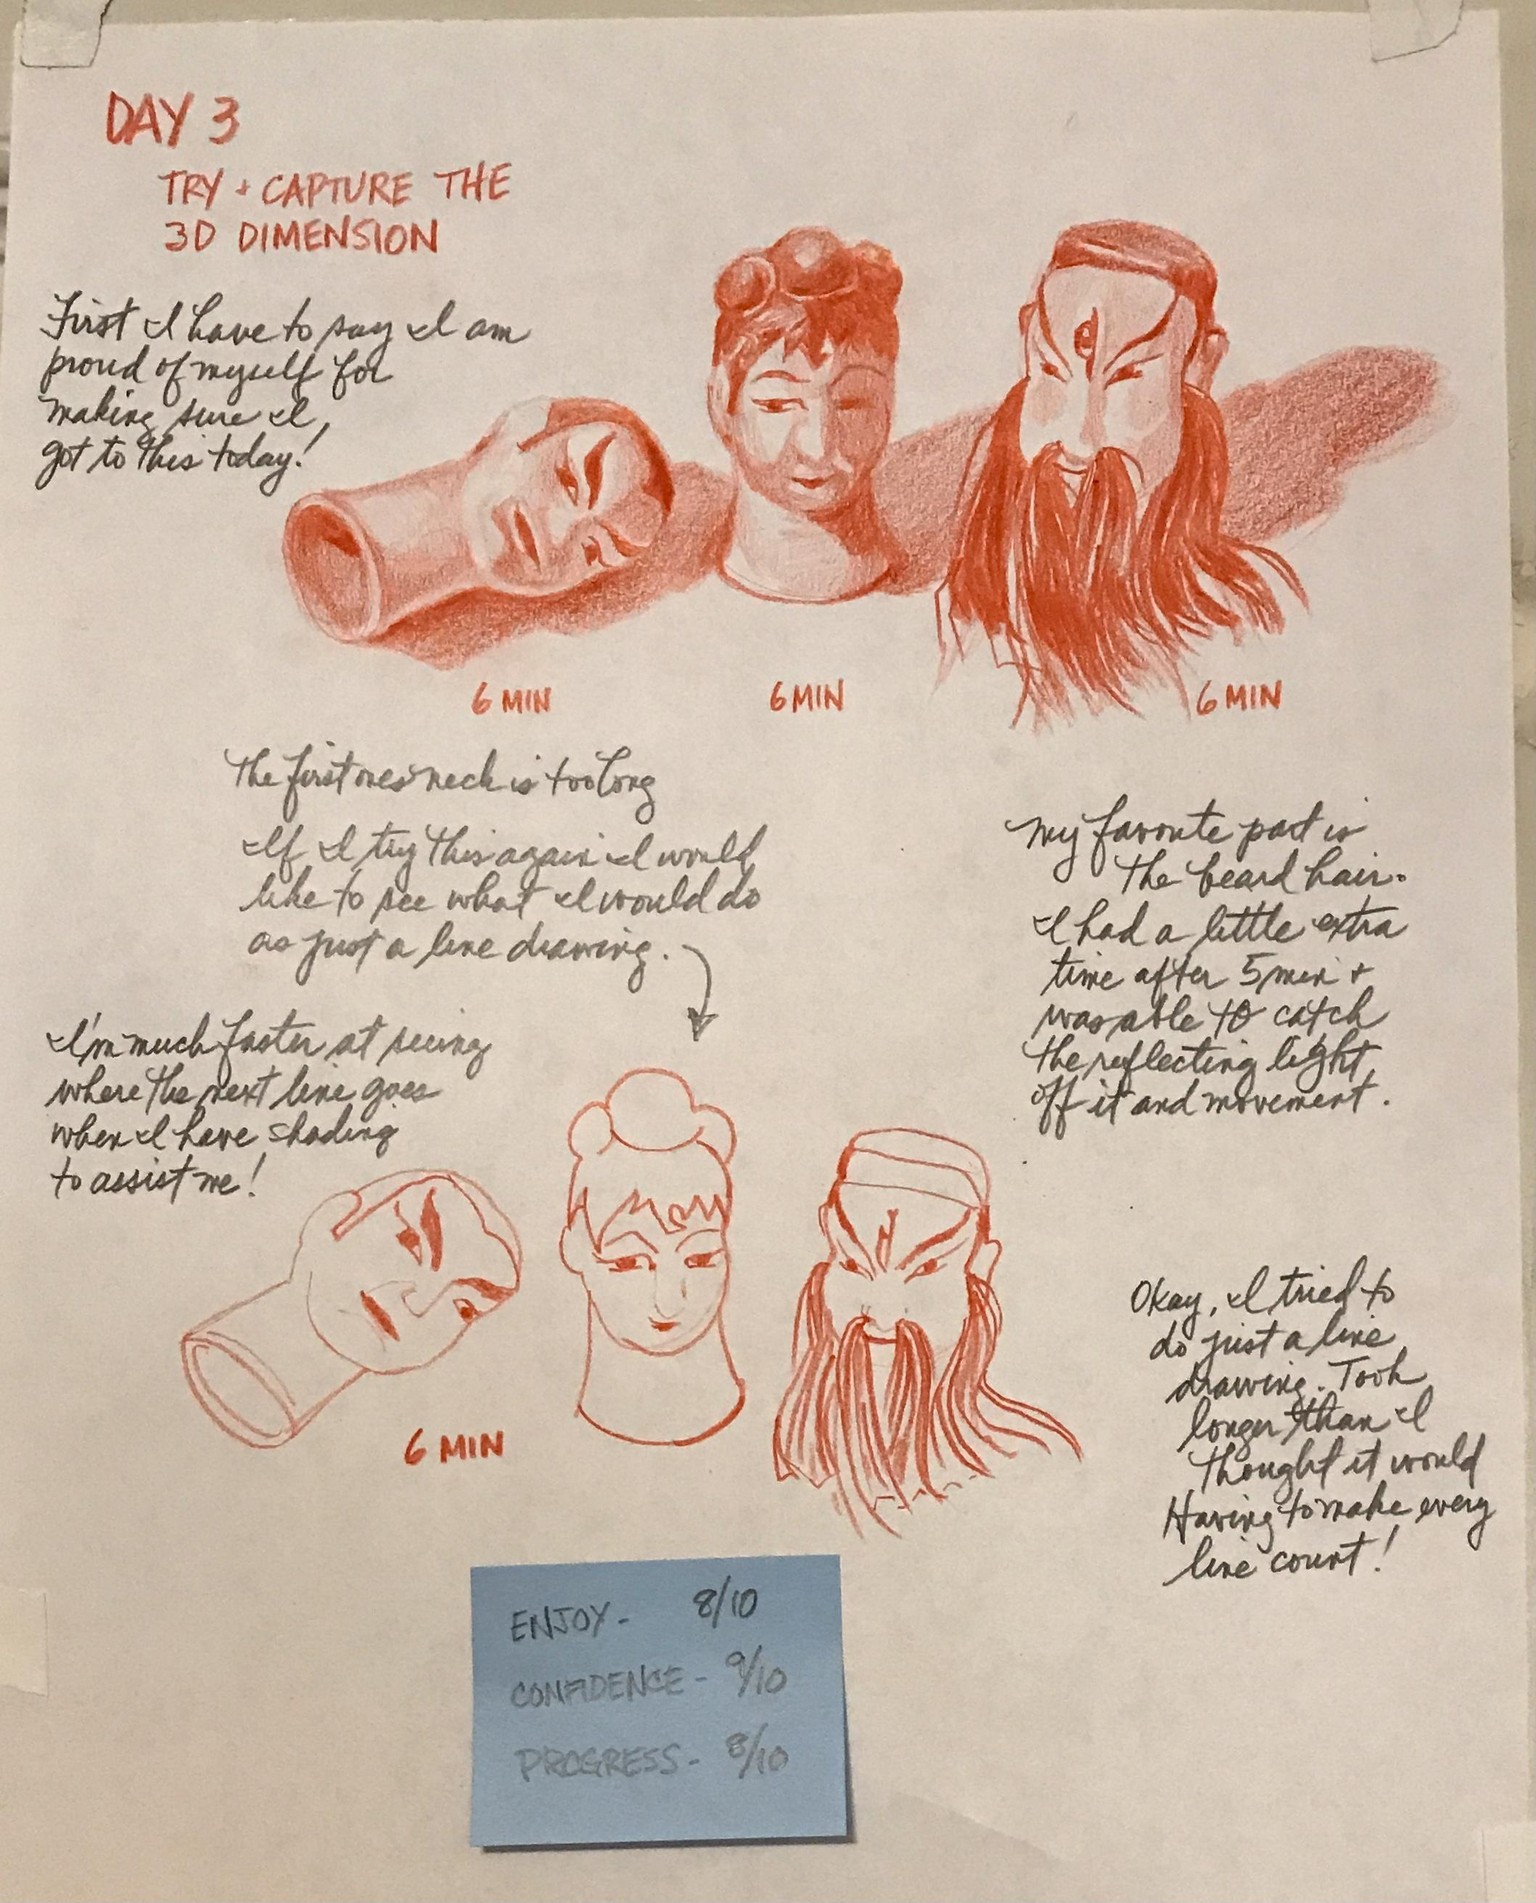 DAY 3
TRY + CAPTURE THE
3D DIMENSION
First I have to say I am
proud of myself for
making sure I
got to this today!
6 MIN
6 MIN
6 MIN
The first ones neck is too long
If I try this again I would
like to see what I would do
as just a line drawing.
My favorite part is
the beard hair.
I had a little extra
time after 5 min +
was able to catch
the reflecting light
off it and movement.
I'm much faster at seeing
where the next line goes
when I have shading
to assist me!
6 MIN
Okay, I tried to
do just a line
drawing. Took
longer than I
thought it would
Having to make every
line count!
ENJOY - 8/10
CONFIDENCE - 9/10
PROGRESS - 8/10